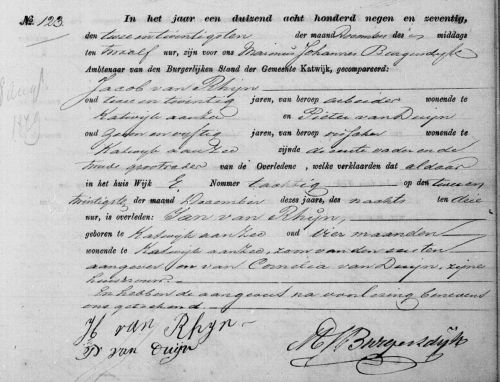 № 123.
In het jaar een duizend acht honderd negen en zeventig,
den twee en twintigsten der maand December des middags
ten twaalf ure, zijn voor ons Marinus Johannes Burgersdijk
Ambtenaar van den Burgerlijken Stand der Gemeente Katwijk, gecompareerd:
Jacob van Rhijn
oud twee en twintig jaren, van beroep arbeider wonende te
Katwijk aan Zee en Pieter van Duijn
oud zeven en vijftig jaren, van beroep visscher wonende te
Katwijk aan Zee zijnde de eerste vader en de
tweede grootvader van de Overledene, welke verklaarden dat aldaar
in het huis Wijk E, Nommer tachtig op den twee en
twintigste der maand December dezes jaars, des nachts ten drie
ure, is overleden: Jan van Rhijn,
geboren te Katwijk aan Zee oud vier maanden
wonende te Katwijk aan Zee, zoon van den eersten
aangever en van Cornelia van Duijn, zijne
huisvrouw.
En hebben de aangevers na voorlezing benevens
ons geteekend.
J van Rhyn
P van Duijn
M J Burgersdijk